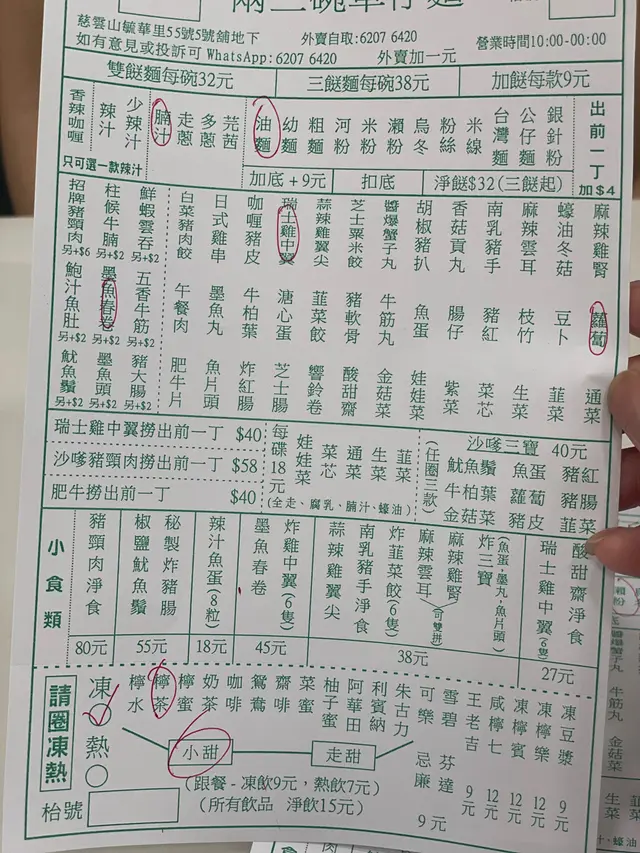 兩三碗車仔麵
慈雲山毓華里55號5號舖地下 外賣自取:6207 6420
如有意見或投訴可 WhatsApp:6207 6420 外賣加一元 營業時間10:00-00:00
雙餸麵每碗32元 三餸麵每碗38元 加餸每款9元
香辣咖喱 辣汁 少辣汁 腩汁 走蔥 多蔥 芫茜 油麵 幼麵 粗麵 河粉 米粉 瀨粉 烏冬 粉絲 米線 台灣麵 公仔麵 銀針粉 出前一丁加$4
只可選一款辣汁 加底 + 9元 扣底 淨餸$32(三餸起)
招牌豬頸肉另+$6 柱候牛腩另+$2 鮮蝦雲吞另+$2 白菜豬肉餃 日式雞串 咖喱豬皮 瑞士雞中翼 蒜辣雞翼尖 芝士粟米餃 醬爆蟹子丸 胡椒豬扒 香菇貢丸 南乳豬手 麻辣雲耳 蠔油冬菇 麻辣雞腎
鮑汁魚肚另+$2 墨魚春卷另+$2 五香牛筋另+$2 午餐肉 墨魚丸 牛柏葉 溏心蛋 韮菜餃 豬軟骨 牛筋丸 魚蛋 腸仔 豬紅 枝竹 豆卜 蘿蔔
魷魚鬚另+$2 墨魚頭另+$2 豬大腸另+$2 肥牛片 魚片頭 炸紅腸 芝士腸 響鈴卷 酸甜齋 金菇菜 娃娃菜 紫菜 菜芯 生菜 韮菜 通菜
瑞士雞中翼撈出前一丁 $40
沙嗲豬頸肉撈出前一丁 $58
肥牛撈出前一丁 $40
每碟18元 娃娃菜 菜芯 通菜 生菜 韮菜
(全走、腐乳、腩汁、蠔油)
沙嗲三寶 40元
(任圈三款) 魷魚鬚 魚蛋 豬紅
牛柏葉 蘿蔔 豬腸
金菇菜 豬皮 韮菜
小食類
豬頸肉淨食 80元
椒鹽魷魚鬚 秘製炸豬腸 55元
辣汁魚蛋(8粒) 18元
墨魚春卷 炸雞中翼(6隻) 45元
蒜辣雞翼尖 南乳豬手淨食 炸韮菜餃(6隻) 麻辣雲耳 麻辣雞腎 (可雙拼) 炸三寶(魚蛋,墨丸,魚片頭) 38元
瑞士雞中翼(6隻) 酸甜齋淨食 27元
請圈凍熱 凍 熱
檸水 檸茶 檸蜜 奶茶 咖啡 鴛鴦 齋啡 菜蜜 柚子蜜 阿華田 利賓納 朱古力 可樂 雪碧 忌廉 芬達 9元 王老吉 9元 咸檸七 12元 凍檸賓 12元 凍檸樂 12元 凍豆漿 9元
小甜 走甜
(跟餐 - 凍飲9元，熱飲7元)
(所有飲品 淨飲15元)
枱號